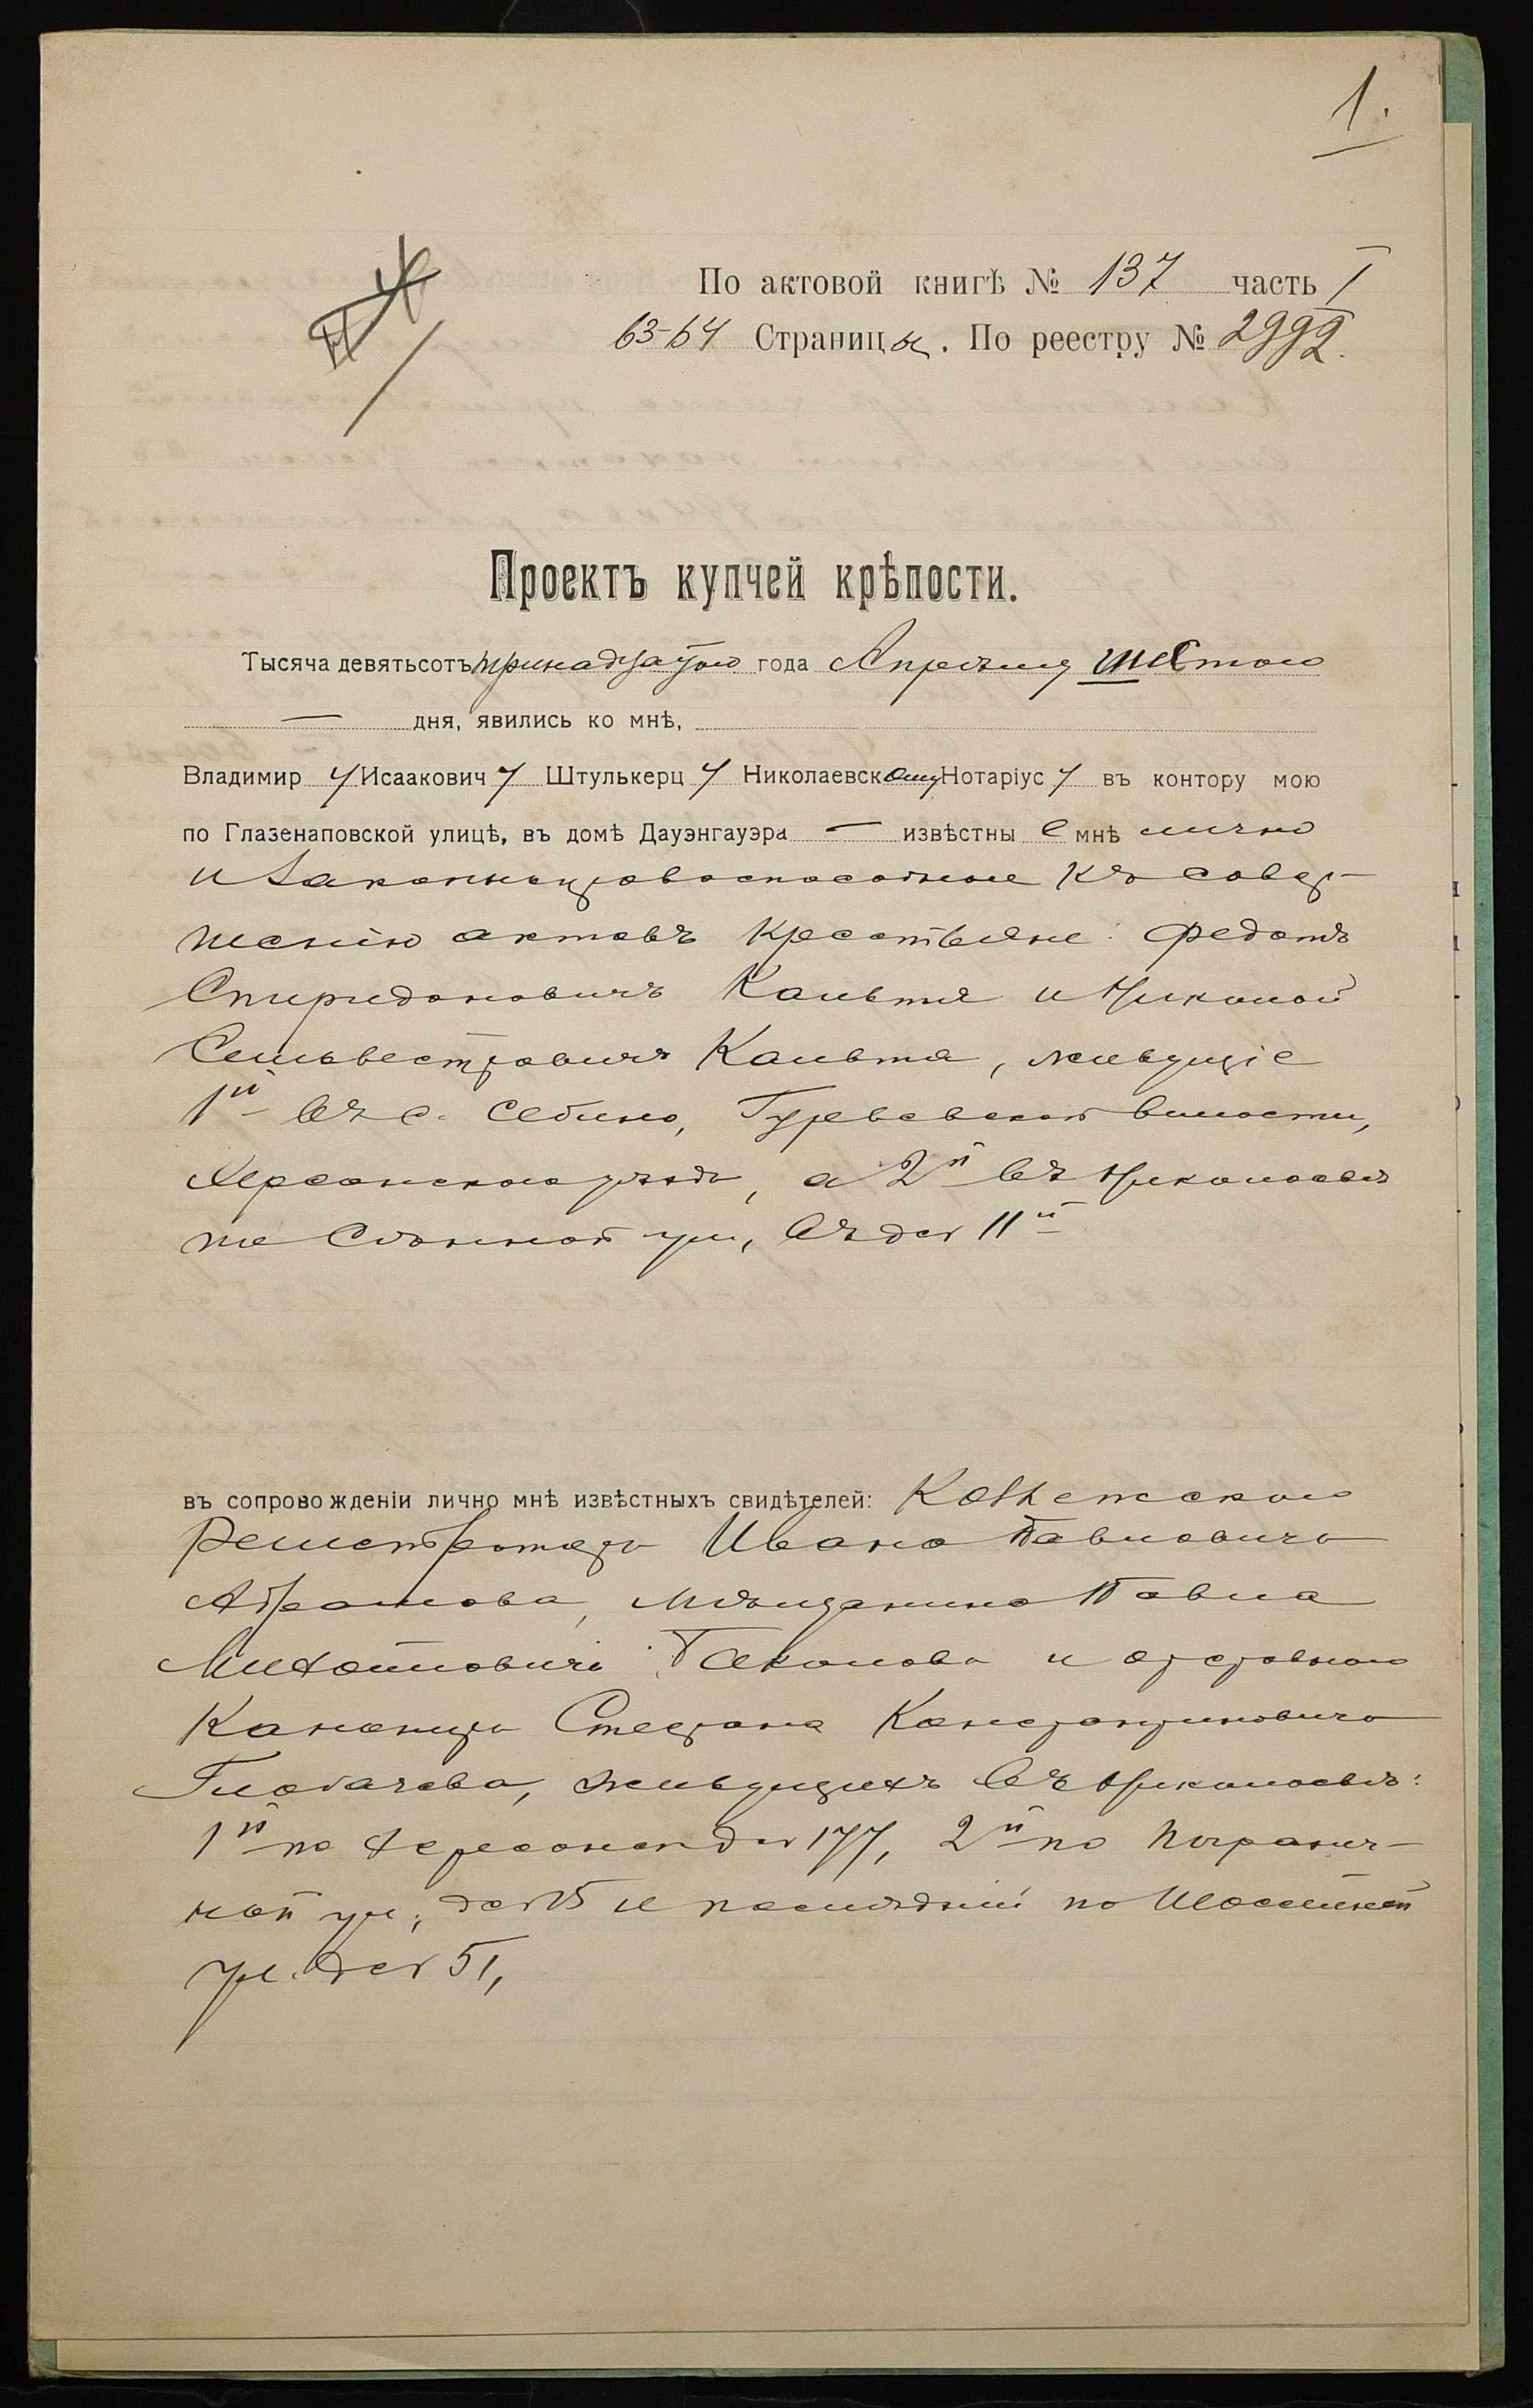 1.
По актовой книгѣ № 137 часть I
63-64 Страницы. По реестру № 2992.
Проектъ купчей крѣпости.
Тысяча девятьсотъ тринадцатого года Апрѣля шестого
— дня, явились ко мнѣ,
Владимир у Исаакович у Штулькерц у Николаевскому Нотаріус у въ контору мою
по Глазенаповской улицѣ, въ домѣ Дауэнгауэра — извѣстны е мнѣ лично
и законноправоспособные къ совер-
шенію актовъ крестьяне: Федотъ
Спиридоновичъ и Николай
Сильвестровичъ, живущіе
1й въ с. Себино, волости,
Херсонскаго уѣзда, а 2й въ Николаевѣ
по Сѣнной ул., въ д. № 11й
въ сопровожденіи лично мнѣ извѣстныхъ свидѣтелей: Коллежскаго
Регистратора Ивана Павловича
Абрамова, мѣщанина Павла
Михайловича и отставного
Канонира Степана Константиновича
живущихъ въ Николаевѣ:
1й по Херсонск. д. № 177, 2й по Погранич-
ной ул., д. № и послѣдній по Шоссейной
ул. д. № 51,